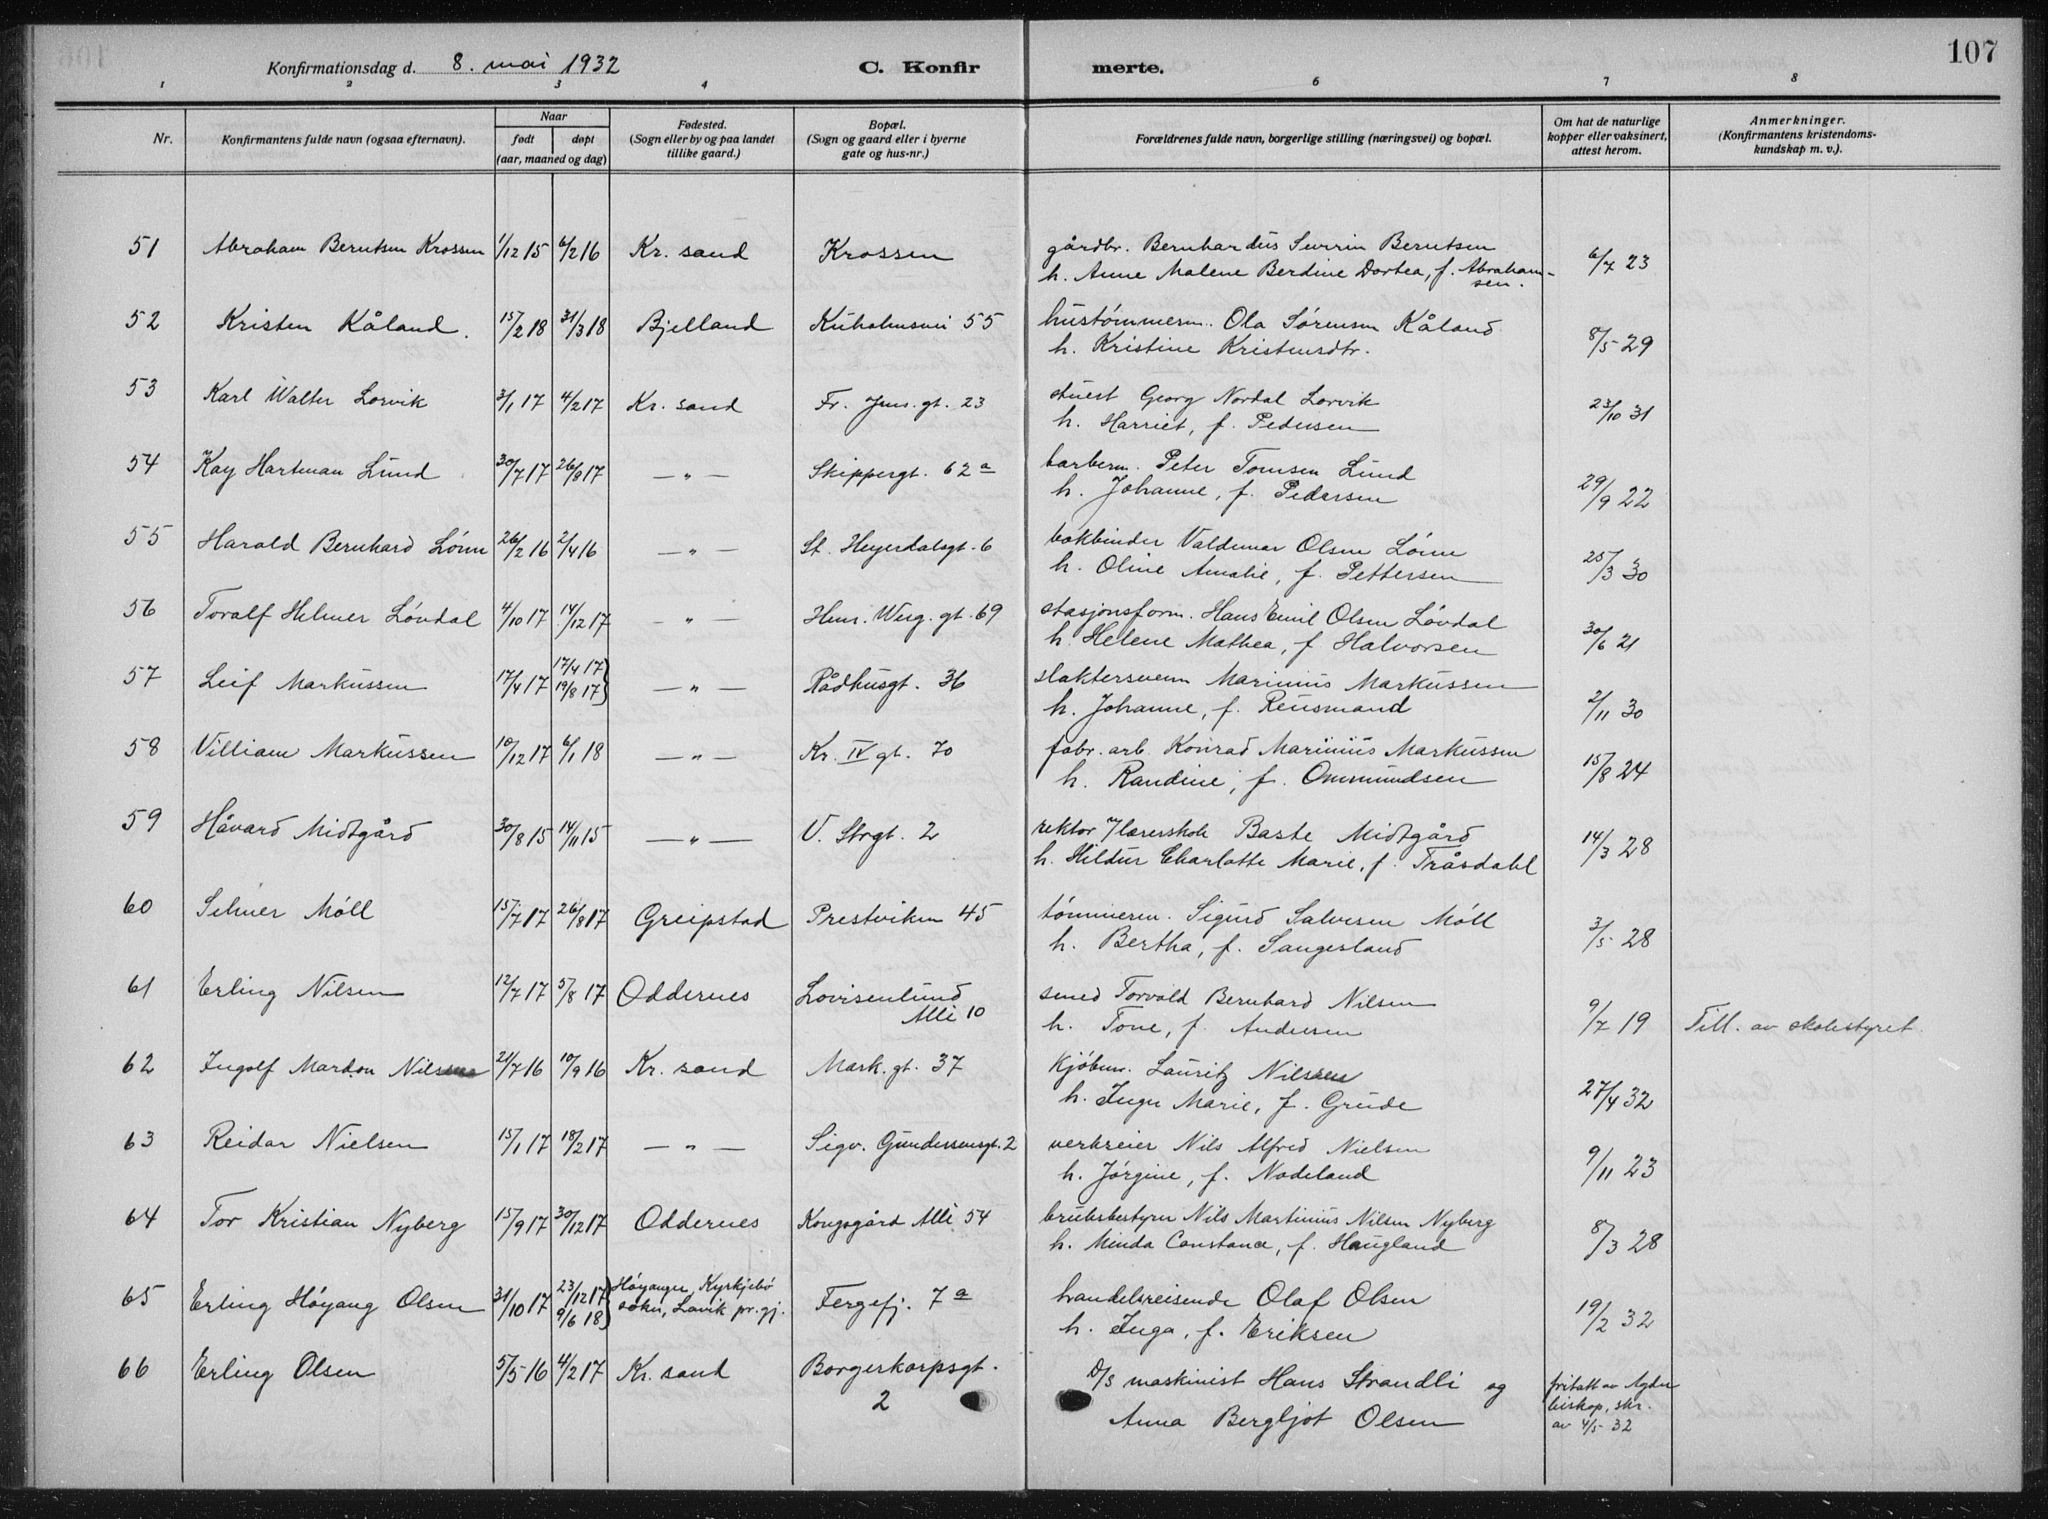 107
Konfirmationsdag d. 8. mai 1932
C. Konfirmerte.
1 2 3 4 5 6 7 8
Nr. | Konfirmantens fulde navn (ogsaa efternavn). | Naar født | døpt (aar, maaned og dag) | Fødested. (Sogn eller by og paa landet tillike gaard.) | Bopæl. (Sogn og gaard eller i byerne gate og hus-nr.) | Forældrenes fulde navn, borgerlige stilling (næringsvei) og bopæl. | Om hat de naturlige kopper eller vaksinert, attest herom. | Anmerkninger. (Konfirmantens kristendomskundskap m. v.).
51 Abraham Berntsen Krossen 1/12 15 6/2 16 Kr. sand Krossen gårdbr. Bernhardus Severin Berntsen
h. Anne Malene Berdine Dortea, f. Abrahamsen. 6/7 23
52 Kristen Kåland. 15/2 18 31/3 18 Bjelland Kuholmsvei 55 hustømmerm. Ola Sørensen Kåland
h. Kristine Kristensdtr. 8/5 29
53 Karl Walter Lorvik 3/1 17 4/2 17 Kr. sand Fr. Jens. gt. 23 stuert Georg Nordal Lorvik
h. Harriet, f. Pedersen 23/10 31
54 Kay Hartman Lund 30/7 17 26/8 17 — " — Skippergt. 62 a barberm. Peter Tomsen Lund
h. Johanne, f. Pedersen 29/9 22
55 Harald Bernhard Lønn 26/2 16 2/4 16 — " — St. Heyerdalsgt. 6 bokbinder Valdemar Olsen Lønn
h. Oline Amalie, f. Pettersen 25/3 30
56 Toralf Helmer Løvdal 4/10 17 14/12 17 — " — Henr. Werg. gt. 69 stasjonsform. Hans Emil Olsen Løvdal
h. Helene Mathea, f. Halvorsen 30/6 21
57 Leif Markussen 17/4 17 17/4 17 } 19/8 17 — " — Rådhusgt. 36 slaktersvenn Marinius Markussen
h. Johanne, f. Reusmand 2/11 30
58 Villiam Markussen 10/12 17 6/1 18 — " — Kr. IV gt. 70 fabr. arb. Konrad Marinius Markussen
h. Randine, f. Ommundsen 15/8 24
59 Håvard Midtgård 30/8 15 14/11 15 — " — V. Strgt. 2 rektor v/lærerskole Baste Midtgård
h. Hildur Charlotte Marie, f. Tråsdahl 14/3 28
60 Selmer Møll 15/7 17 26/8 17 Greipstad Prestviken 45 tømmerm. Sigurd Salvesen Møll
h. Bertha, f. Sangesland 3/5 28
61 Erling Nilsen 12/7 17 5/8 17 Oddernes Lovisenlund Alle 10 smed Torvald Bernhard Nilsen
h. Tone, f. Andersen 9/7 19 Till. av skolestyret.
62 Ingolf Mardon Nilsen 21/7 16 10/9 16 Kr. sand Mark. gt. 37 Kjøbm. Lauritz Nilsen
h. Inger Marie, f. Grude 27/4 32
63 Reidar Nielsen 15/1 17 18/2 17 — " — Sigv. Gundersensgt. 2 verkseier Nils Alfred Nielsen
h. Jørgine, f. Nodeland 9/11 23
64 Tor Kristian Nyberg 15/9 17 30/12 17 Oddernes Kongsgård Alle 54 bruksbestyrer Nils Martinius Nilsen Nyberg
h. Minda Constance, f. Haugland 8/3 28
65 Erling Høyang Olsen 31/10 17 23/12 17 } 9/6 18 Høyanger, Kyrkjebø sokn, Lavik pr.gj. Fergefj. 7 a handelsreisende Olaf Olsen
h. Inga, f. Eriksen 19/2 32
66 Erling Olsen 5/5 16 4/2 17 Kr. sand Borgerkorpsgt. 2 D/S maskinist Hans Strandli og
Anna Bergljot Olsen fritatt av Agder biskop, skr. av 4/5 32